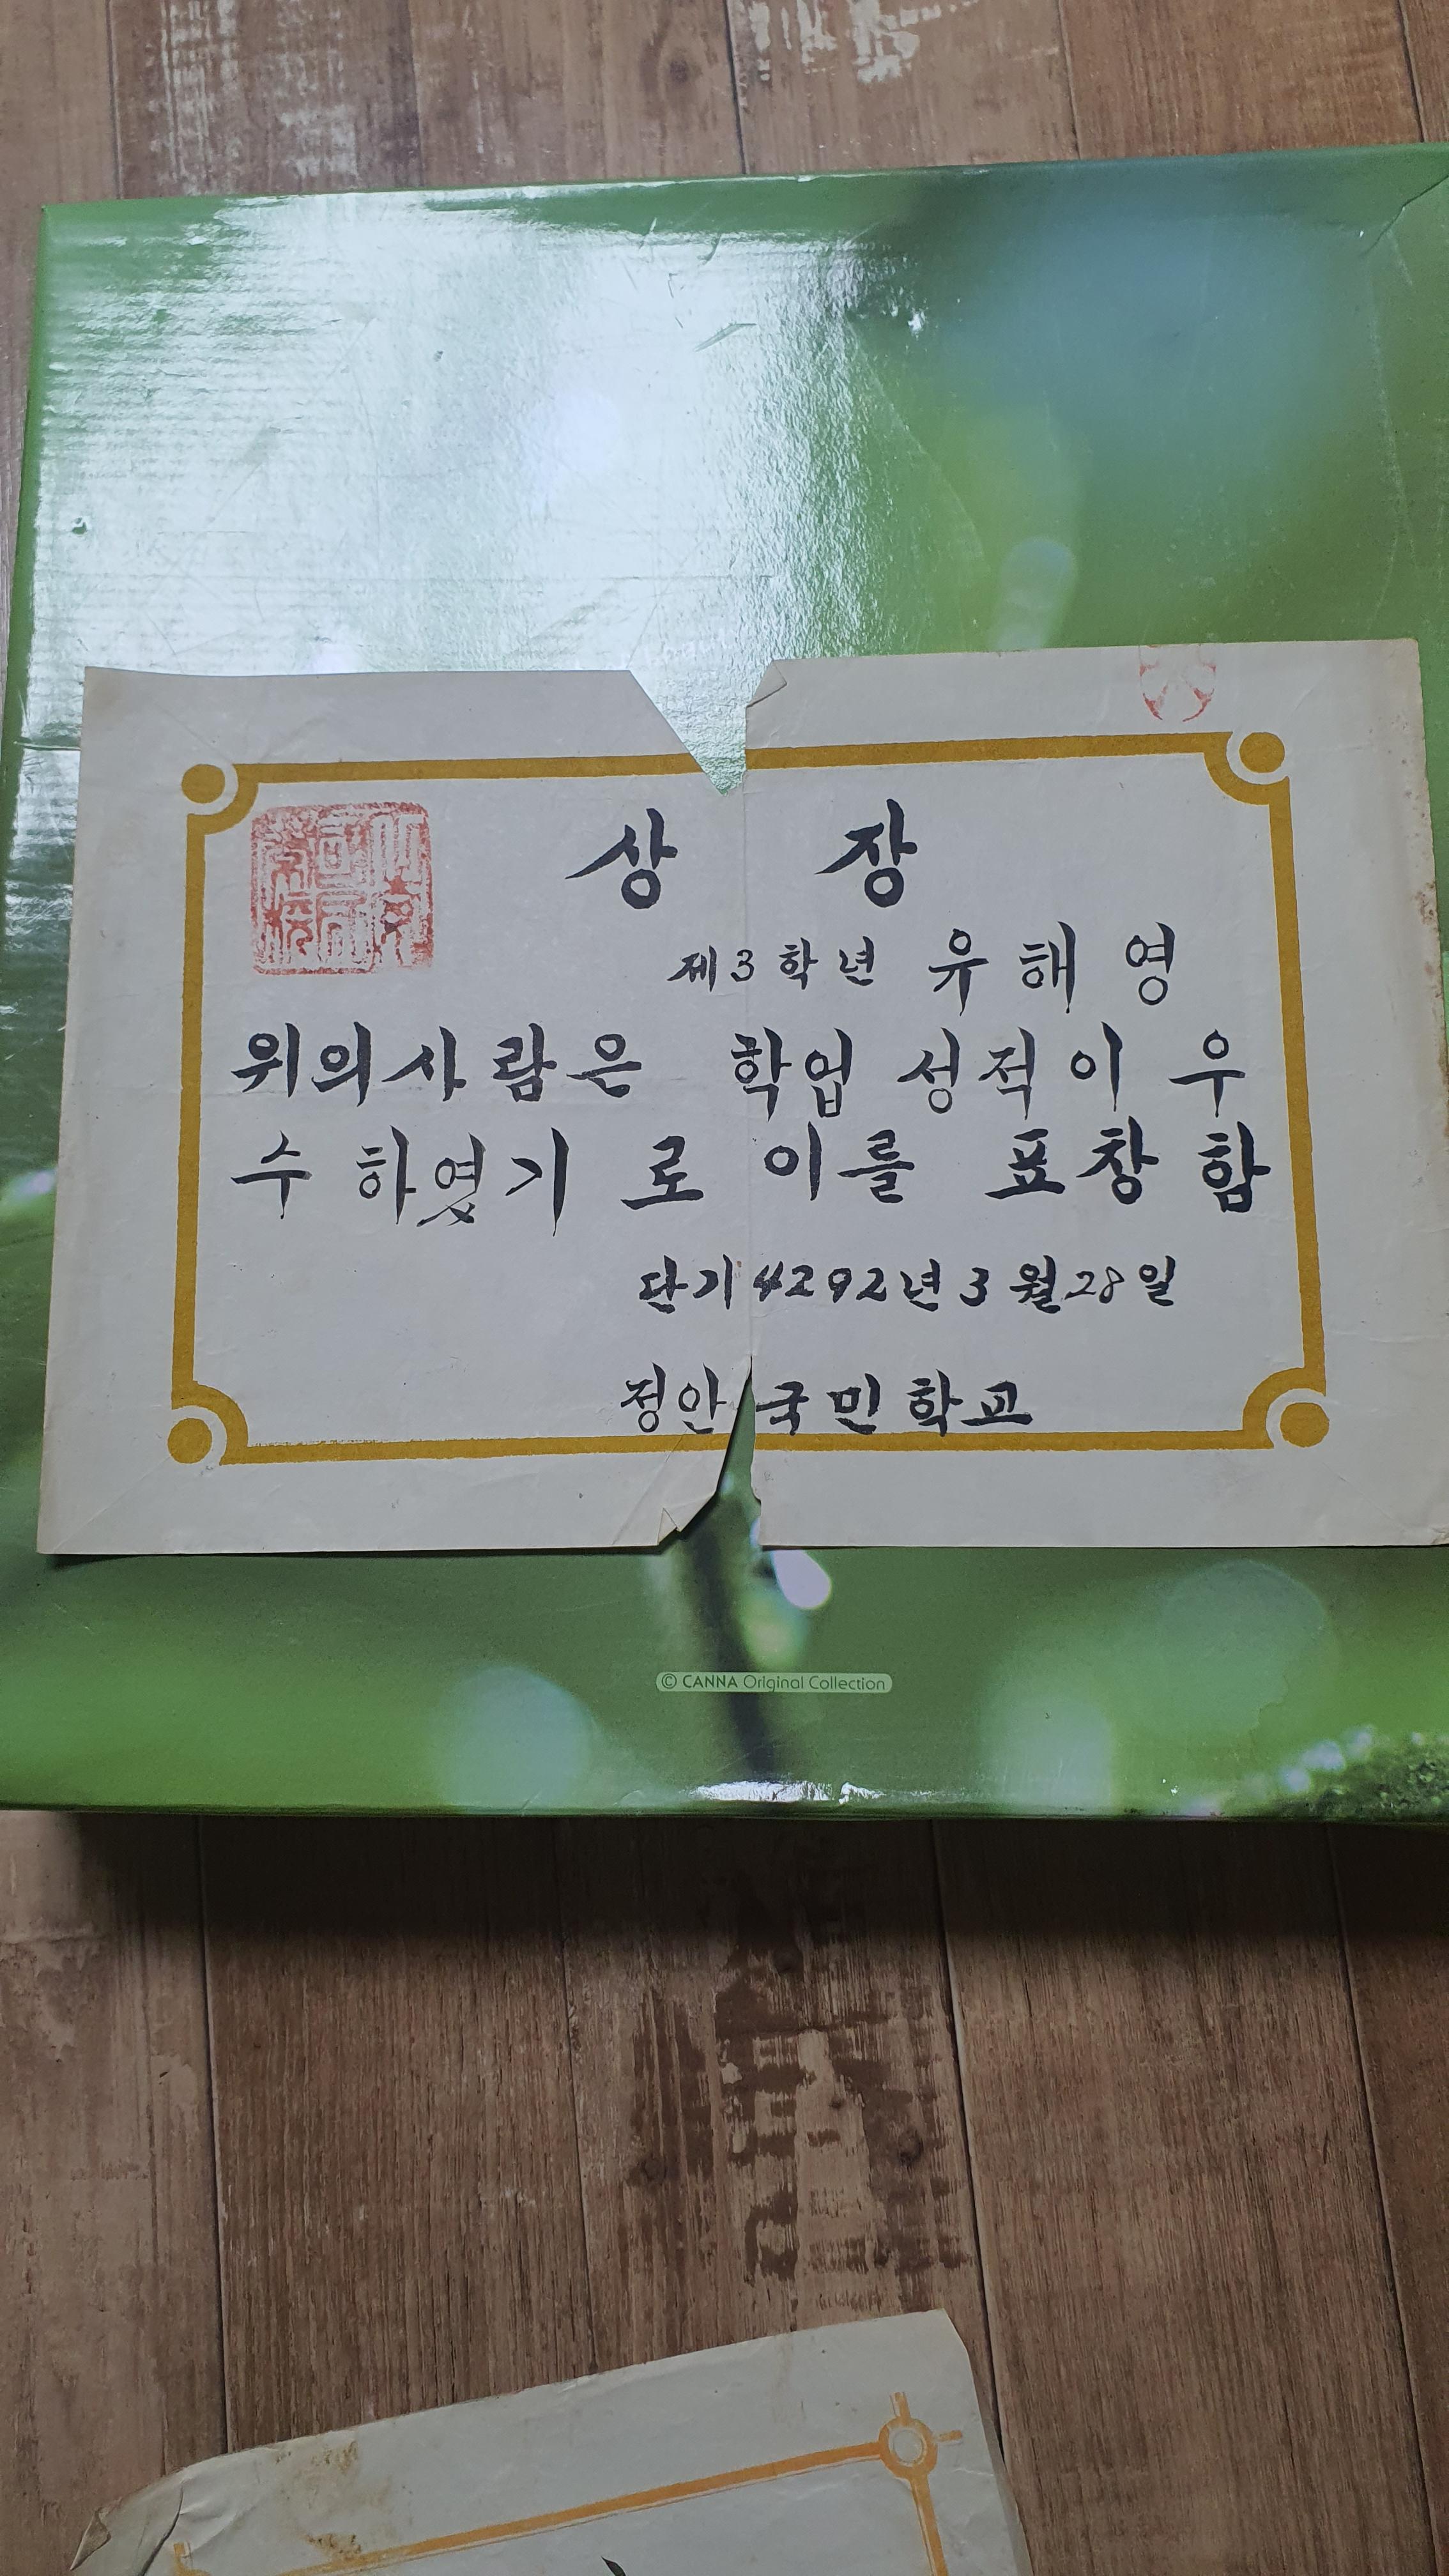 상 장
제3학년 유해영
위의사람은 학업 성적이 우
수 하였기 로 이를 표창 함
단기 4292년 3월 28일
정안 국민학교
© CANNA Original Collection